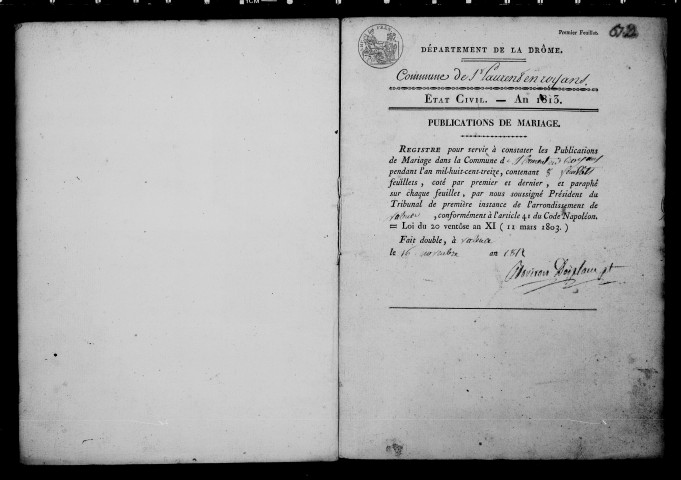 Premier Feuillet.
DÉPARTEMENT DE LA DRÔME.
Commune de St Laurent en royans.
ÉTAT CIVIL. — AN 1813.
PUBLICATIONS DE MARIAGE.
REGISTRE pour servir à constater les Publications
de Mariage dans la Commune d St Laurent en Royans
pendant l'an mil-huit-cent-treize, contenant
feuillets, coté par premier et dernier, et paraphé
sur chaque feuillet, par nous soussigné Président du
Tribunal de première instance de l'arrondissement de
valence, conformément à l'article 41 du Code Napoléon.
= Loi du 20 ventôse an XI ( 11 mars 1803. )
Fait double, à valence
le 16 novembre an 1812